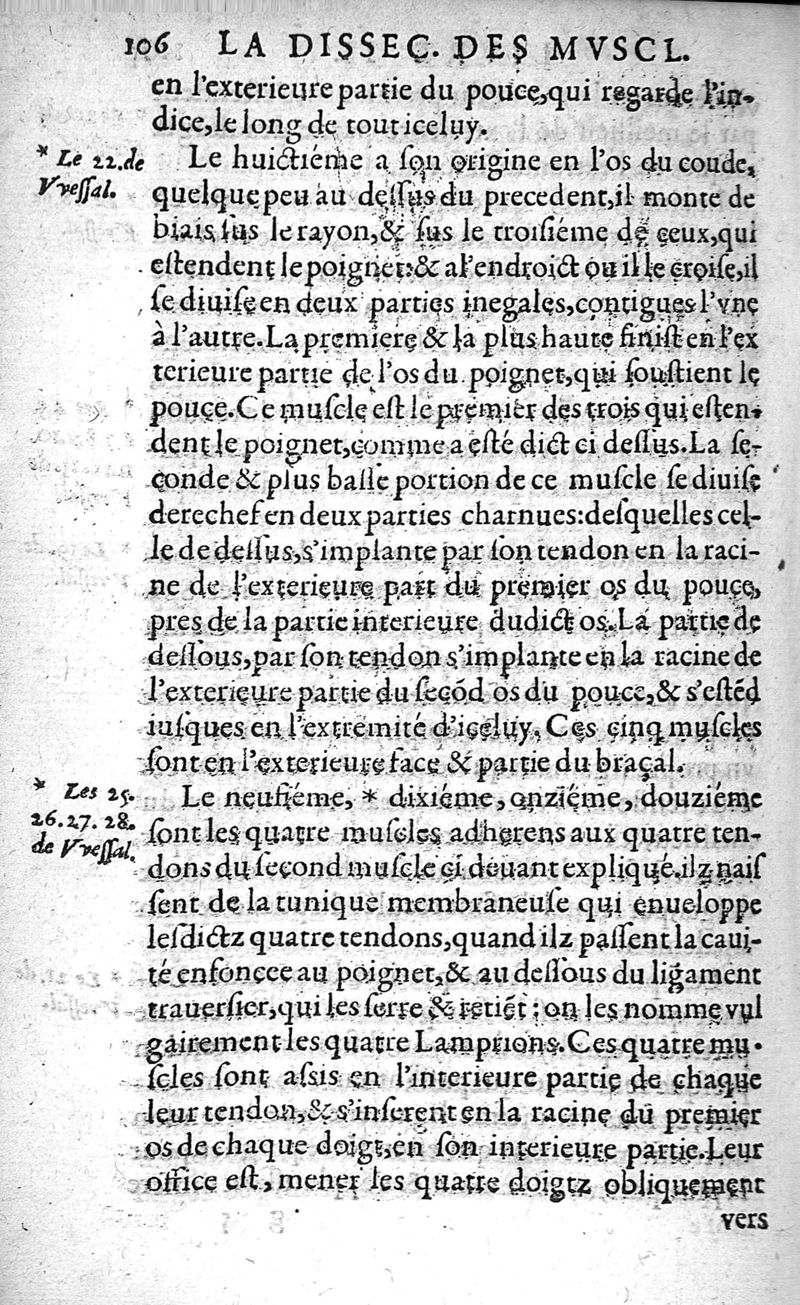 106 LA DISSEC. DES MVSCL.
en l'exterieure partie du pouce,qui regarde l'in-
dice,le long de tout iceluy.
* Le 22.de
Vvessal.
Le huictiéme a son origine en l'os du coude,
quelque peu au dessus du precedent,il monte de
biais sus le rayon,& sus le troisiéme de ceux,qui
estendent le poignet:& a l'endroict ou il le croise,il
se diuise en deux parties inegales,contigues l'vne
à l'autre.La premiere & la plus haute finist en l'ex
terieure partie de l'os du poignet,qui soustient le
pouce.Ce muscle est le premier des trois qui esten-
dent le poignet,comme a esté dict ci dessus.La se-
conde & plus basse portion de ce muscle se diuise
derechef en deux parties charnues:desquelles cel-
le de dessus,s'implante par son tendon en la raci-
ne de l'exterieure part du premier os du pouce,
pres de la partie interieure dudict os.La partie de
dessous,par son tendon s'implante en la racine de
l'exterieure partie du secõd os du pouce,& s'estẽd
iusques en l'extremité d'iceluy. Ces cinq muscles
sont en l'exterieure face & partie du braçal.
* Les 25.
26.27.28.
de Vvessal.
Le neufiéme, * dixiéme, onziéme, douziéme
sont les quatre muscles adherens aux quatre ten-
dons du second muscle ci deuant expliqué.ilz nais
sent de la tunique membraneuse qui enueloppe
lesdictz quatre tendons,quand ilz passent la caui-
té enfoncee au poignet,& au dessous du ligament
trauersier,qui les serre & retiẽt ; on les nomme vul
gairement les quatre Lamprions.Ces quatre mu-
scles sont assis en l'interieure partie de chaque
leur tendon,& s'inserent en la racine du premier
os de chaque doigt,en son interieure partie.Leur
office est, mener les quatre doigtz obliquement
vers